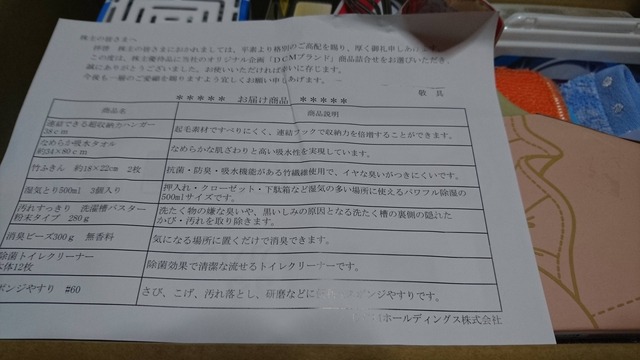 株主の皆さまへ
拝啓 株主の皆さまにおかれましては、平素より格別のご高配を賜り、厚く御礼申しあげます。
この度は、株主優待品に当社のオリジナル企画「DCMブランド」商品詰合せをお選びいただき、
誠にありがとうございました。お使いいただければ幸いに存じます。
今後も一層のご愛顧を賜りますよう宜しくお願い申しあげます。
敬 具
* * * * * お届け商品 * * * * *
商品名 商品説明
連結できる超収納力ハンガー 38cm 起毛素材ですべりにくく、連結フックで収納力を倍増することができます。
なめらか吸水タオル 約34×80cm なめらかな肌ざわりと高い吸水性を実現しています。
竹ふきん 約18×22cm 2枚 抗菌・防臭・吸水機能がある竹繊維使用で、イヤな臭いがつきにくいです。
湿気とり500ml 3個入り 押入れ・クローゼット・下駄箱など湿気の多い場所に使えるパワフル除湿の
500mlサイズです。
汚れすっきり 洗濯槽バスター 粉末タイプ 280g 洗たく物の嫌な臭いや、黒いしみの原因となる洗たく槽の裏側の隠れた
かび・汚れを取り除きます。
消臭ビーズ300g 無香料 気になる場所に置くだけで消臭できます。
除菌トイレクリーナー 本体12枚 除菌効果で清潔な流せるトイレクリーナーです。
ポンジやすり #60 さび、こげ、汚れ落とし、研磨などに スポンジやすりです。
ホールディングス株式会社